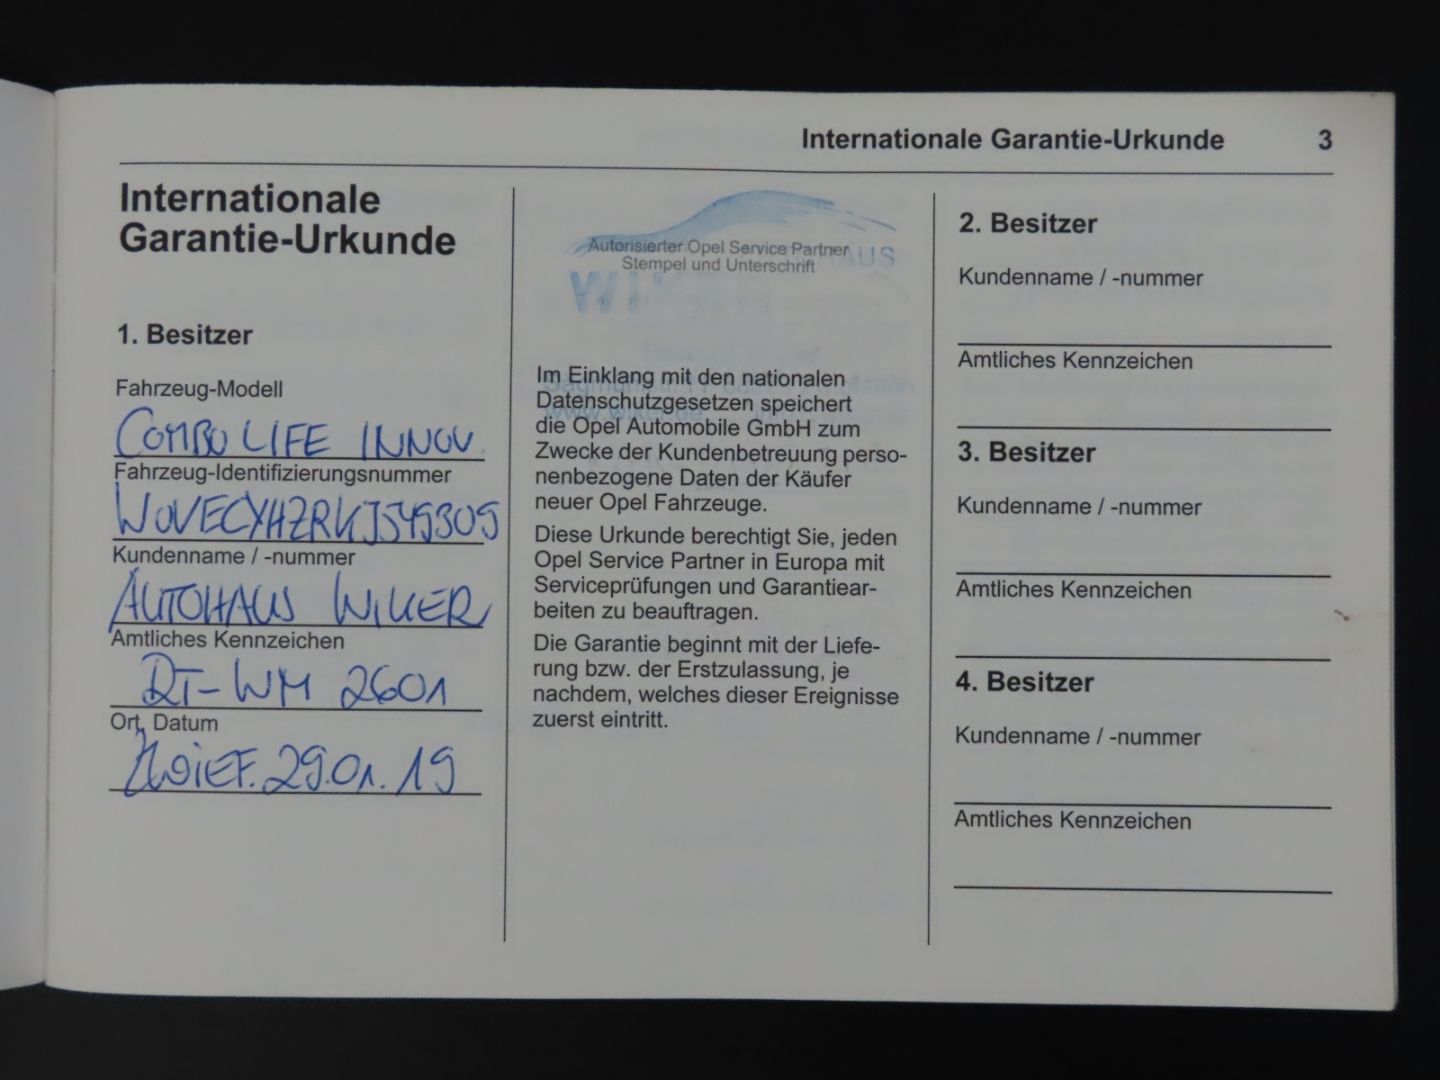 Internationale Garantie-Urkunde 3
Internationale
Garantie-Urkunde
1. Besitzer
Fahrzeug-Modell
COMBO LIFE INNOV.
Fahrzeug-Identifizierungsnummer
W0VECYHZRKJ549309
Kundenname / -nummer
AUTOHAUS WIKER
Amtliches Kennzeichen
RT-WM 2601
Ort, Datum
29.01.19
Autorisierter Opel Service Partner
Stempel und Unterschrift
Im Einklang mit den nationalen
Datenschutzgesetzen speichert
die Opel Automobile GmbH zum
Zwecke der Kundenbetreuung perso-
nenbezogene Daten der Käufer
neuer Opel Fahrzeuge.
Diese Urkunde berechtigt Sie, jeden
Opel Service Partner in Europa mit
Serviceprüfungen und Garantiear-
beiten zu beauftragen.
Die Garantie beginnt mit der Liefe-
rung bzw. der Erstzulassung, je
nachdem, welches dieser Ereignisse
zuerst eintritt.
2. Besitzer
Kundenname / -nummer
Amtliches Kennzeichen
3. Besitzer
Kundenname / -nummer
Amtliches Kennzeichen
4. Besitzer
Kundenname / -nummer
Amtliches Kennzeichen